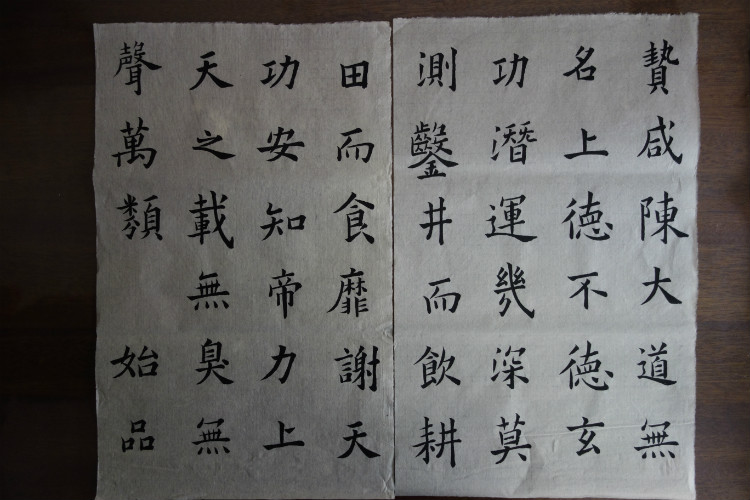 贊咸陳大道無
名上德不德玄
功潛運幾深莫
測鑿井而飲耕
田而食靡謝天
功安知帝力上
天之載無臭無
聲萬類 始品